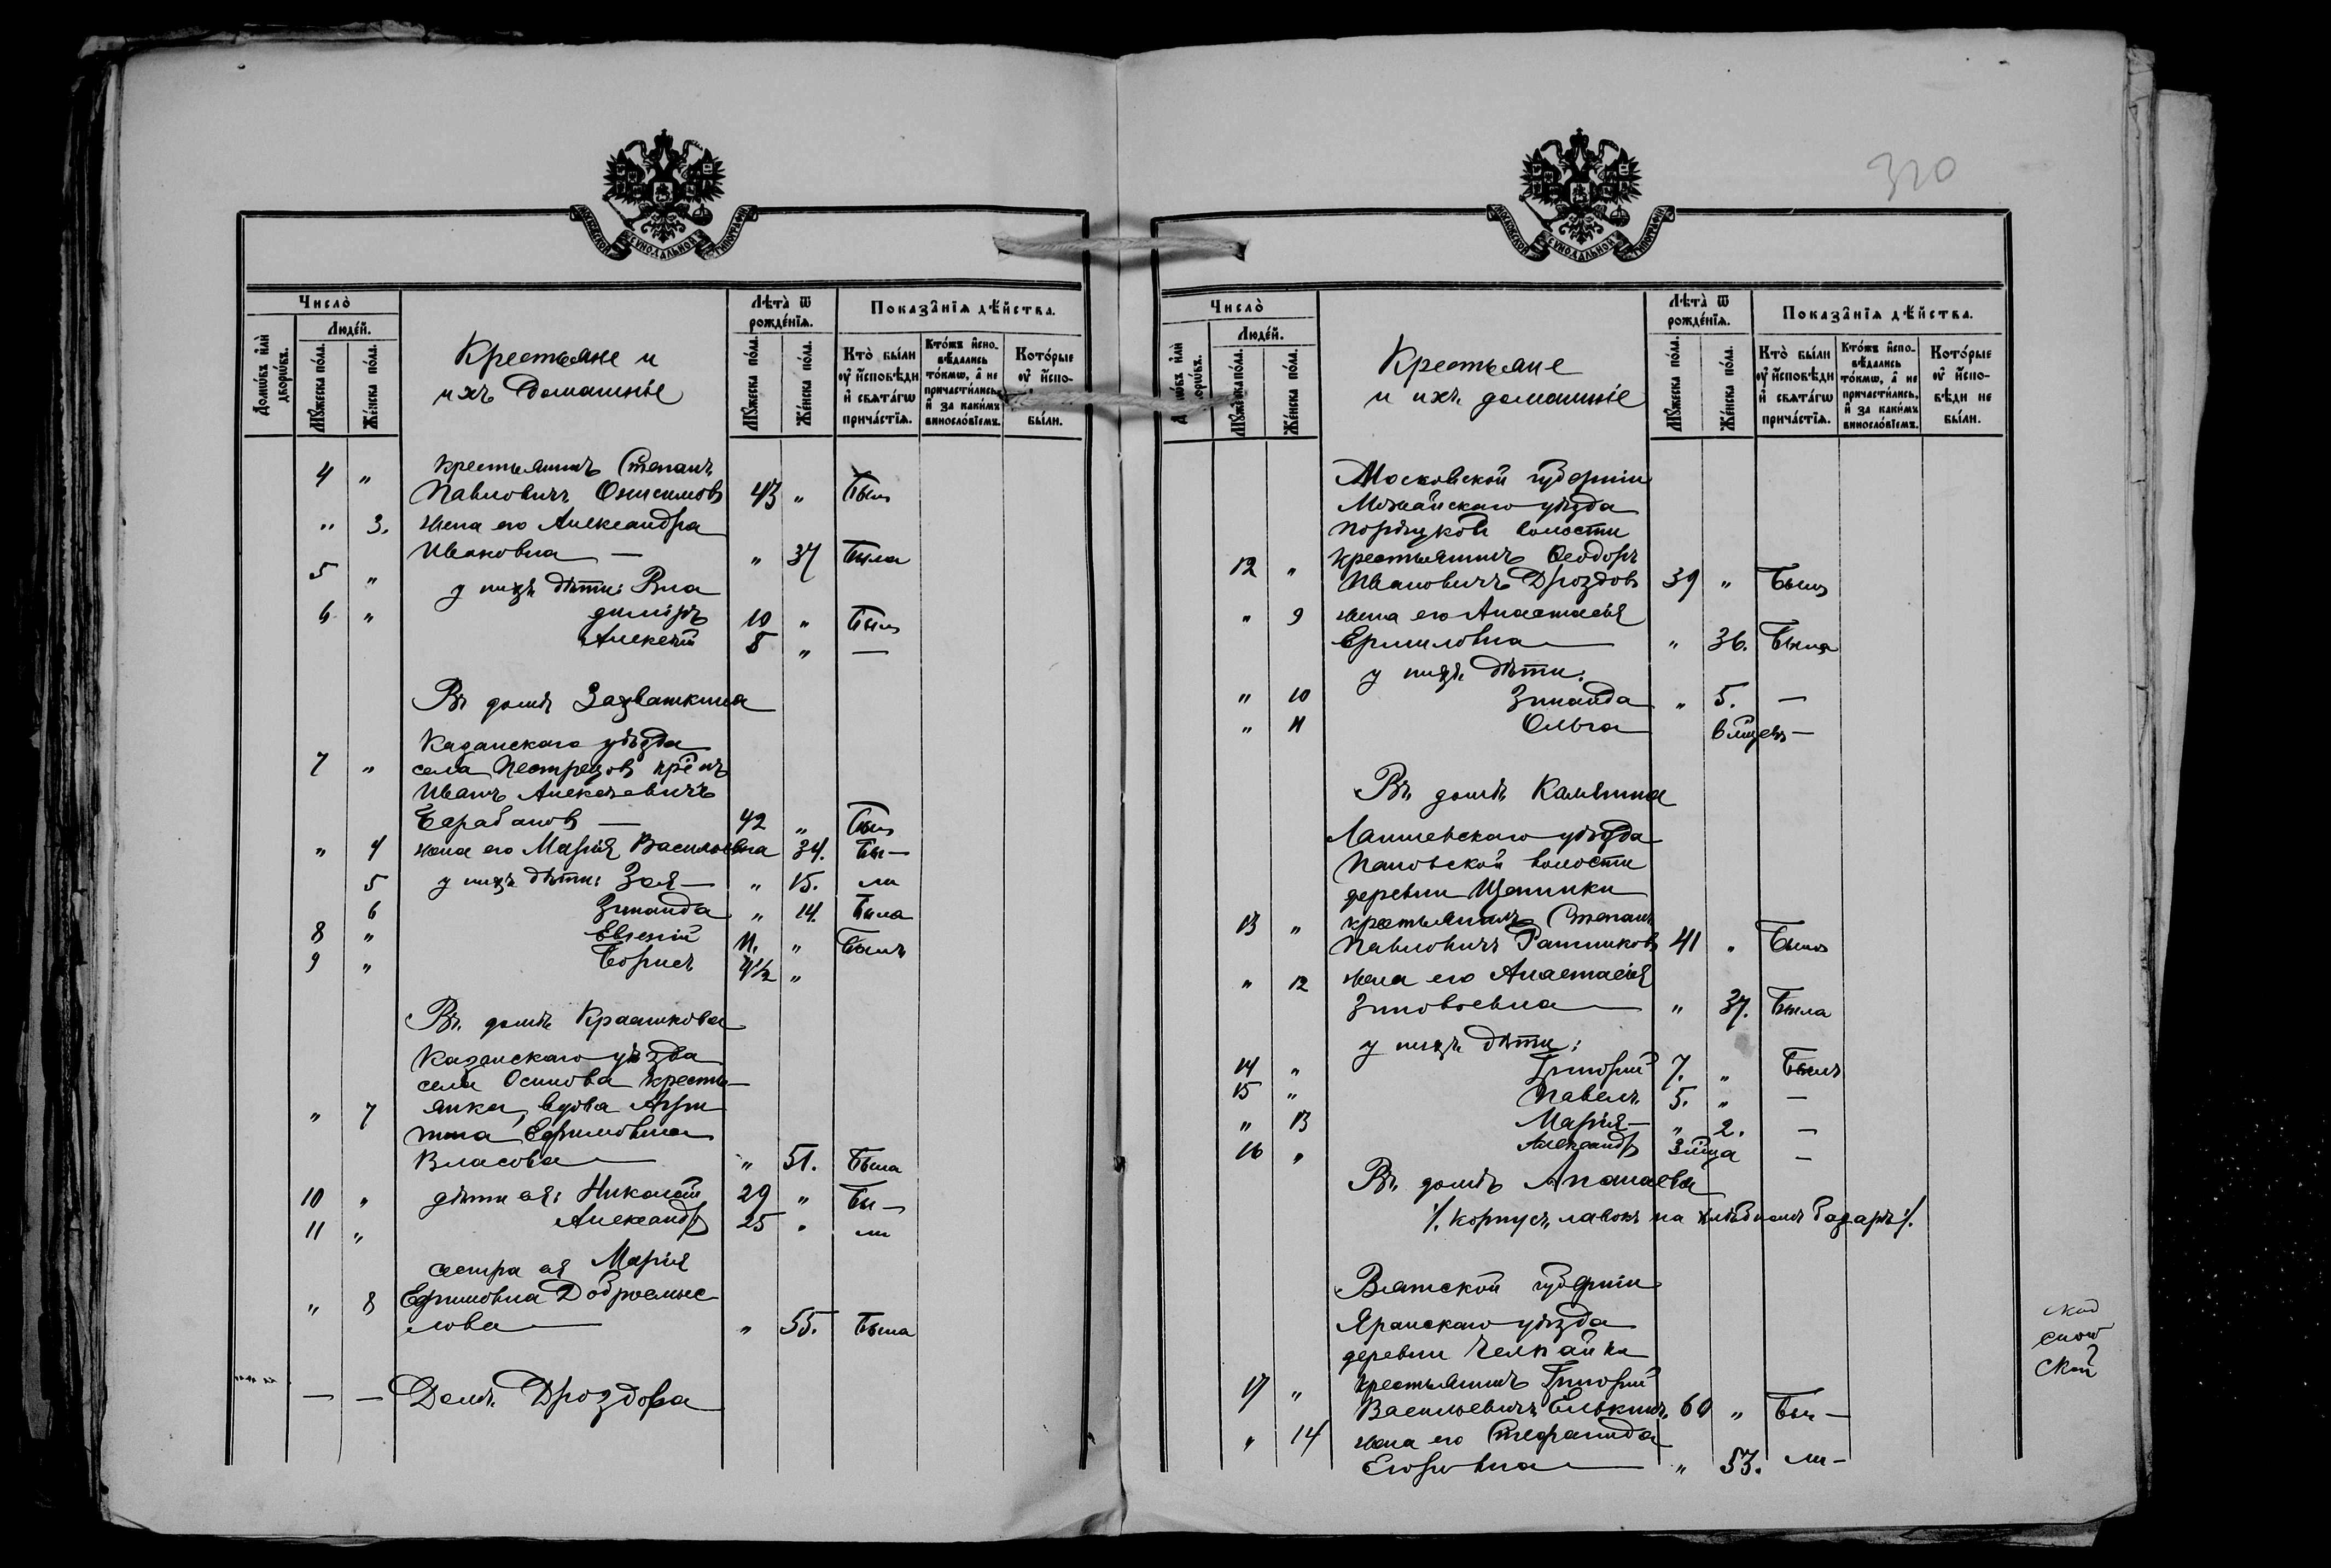 МОСКОВСКОЙ СѴНОДАЛЬНОЙ ТИПОГРАФІИ
Число̀
Люде́й.
Домѡ́въ и҆лѝ дворѡ́въ.
Мꙋ́жеска по́ла.
Же́нска по́ла.
Крестьяне и
ихъ домашніе
Лѣта̀ ѿ рожде́нїѧ.
Мꙋ́жеска по́ла.
Же́нска по́ла.
Показа̑нїѧ дѣ́йства.
Кто̀ бы́ли ᲂу҆ и҆сповѣди и҆ свѧта́гѡ прича́стїѧ.
Кто́жъ и҆спо-вѣдались то́кмѡ, а҆ не причасти́лись, и҆ за каки́мъ винослόвїемъ.
Кото́рые ᲂу҆ и҆спо-
бы́ли.
4 " Крестьянинъ Степанъ
Павловичъ Онисимовъ 43 " Былъ
" 3. жена его Александра
Ивановна — " 37 Была
5 " у нихъ дѣти: Вла
6 " диміръ 10 " Былъ
Алексѣй 8 " —
Въ домѣ Захваткина
Казанскаго уѣзда
7 " села Пестрецовъ кр-нъ
Иванъ Алексѣевичъ
Барабановъ — 42 " Былъ
" 4 жена его Марія Васильевна 34. Бы—
5 у нихъ дѣти: Зоя — " 15. ли
6 Зинаида " 14. Была
8 " Евгеній 11. " Былъ
9 " Борисъ 4½ "
Въ домѣ Крашкова
Казанскаго уѣзда
села Осинова кресть—
" 7 янка, вдова Агри
пина Ефимовна
Власова — " 51. Была
10 " дѣти ея: Николай 29 " Бы—
11 " Александръ 25 " ли
сестра ея Марія
" 8 Ефимовна Добросмыс
лова — " 55. Была
— — Домъ Дроздова
320
МОСКОВСКОЙ СѴНОДАЛЬНОЙ ТИПОГРАФІИ
Число̀
Люде́й.
Мꙋ́жеска по́ла.
Же́нска по́ла.
Крестьяне
и ихъ домашніе
Лѣта̀ ѿ рожде́нїѧ.
Мꙋ́жеска по́ла.
Же́нска по́ла.
Показа̑нїѧ дѣ́йства.
Кто̀ бы́ли ᲂу҆ и҆сповѣди и҆ свѧта́гѡ прича́стїѧ.
Кто́жъ и҆спо-вѣдались то́кмѡ, а҆ не причасти́лись, и҆ за каки́мъ винослόвїемъ.
Кото́рые ᲂу҆ и҆спо-вѣди не бы́ли.
Московской губерніи
Можайскаго уѣзда
волости
12 " крестьянинъ Ѳеодоръ
Ивановичъ Дроздовъ 39 " Былъ
" 9 жена его Анастасія
Ермиловна — " 36. Была
у нихъ дѣти:
" 10 Зинаида " 5. —
" 11 Ольга —
Въ домѣ Калинина
Лаишевскаго уѣзда
Пановской волости
деревни
13 " крестьянинъ Степанъ
Павловичъ Ратниковъ 41 " Былъ
" 12 жена его Анастасія
Зиновьевна — " 37. Была
у нихъ дѣти:
14 " Григорій 7. " Былъ
15 " Павелъ 5. " —
" 13 Марія — " 2. —
16 " Александръ —
Въ домѣ Апанаева
%. корпусъ лавокъ на хлѣбномъ базарѣ %.
Вятской губерніи
Яранскаго уѣзда
деревни
17 " крестьянинъ Григорій
Васильевичъ Елькинъ, 60 " Бы—
" 14 жена его Стефанида
Егоровна — " 53. ли—
ской